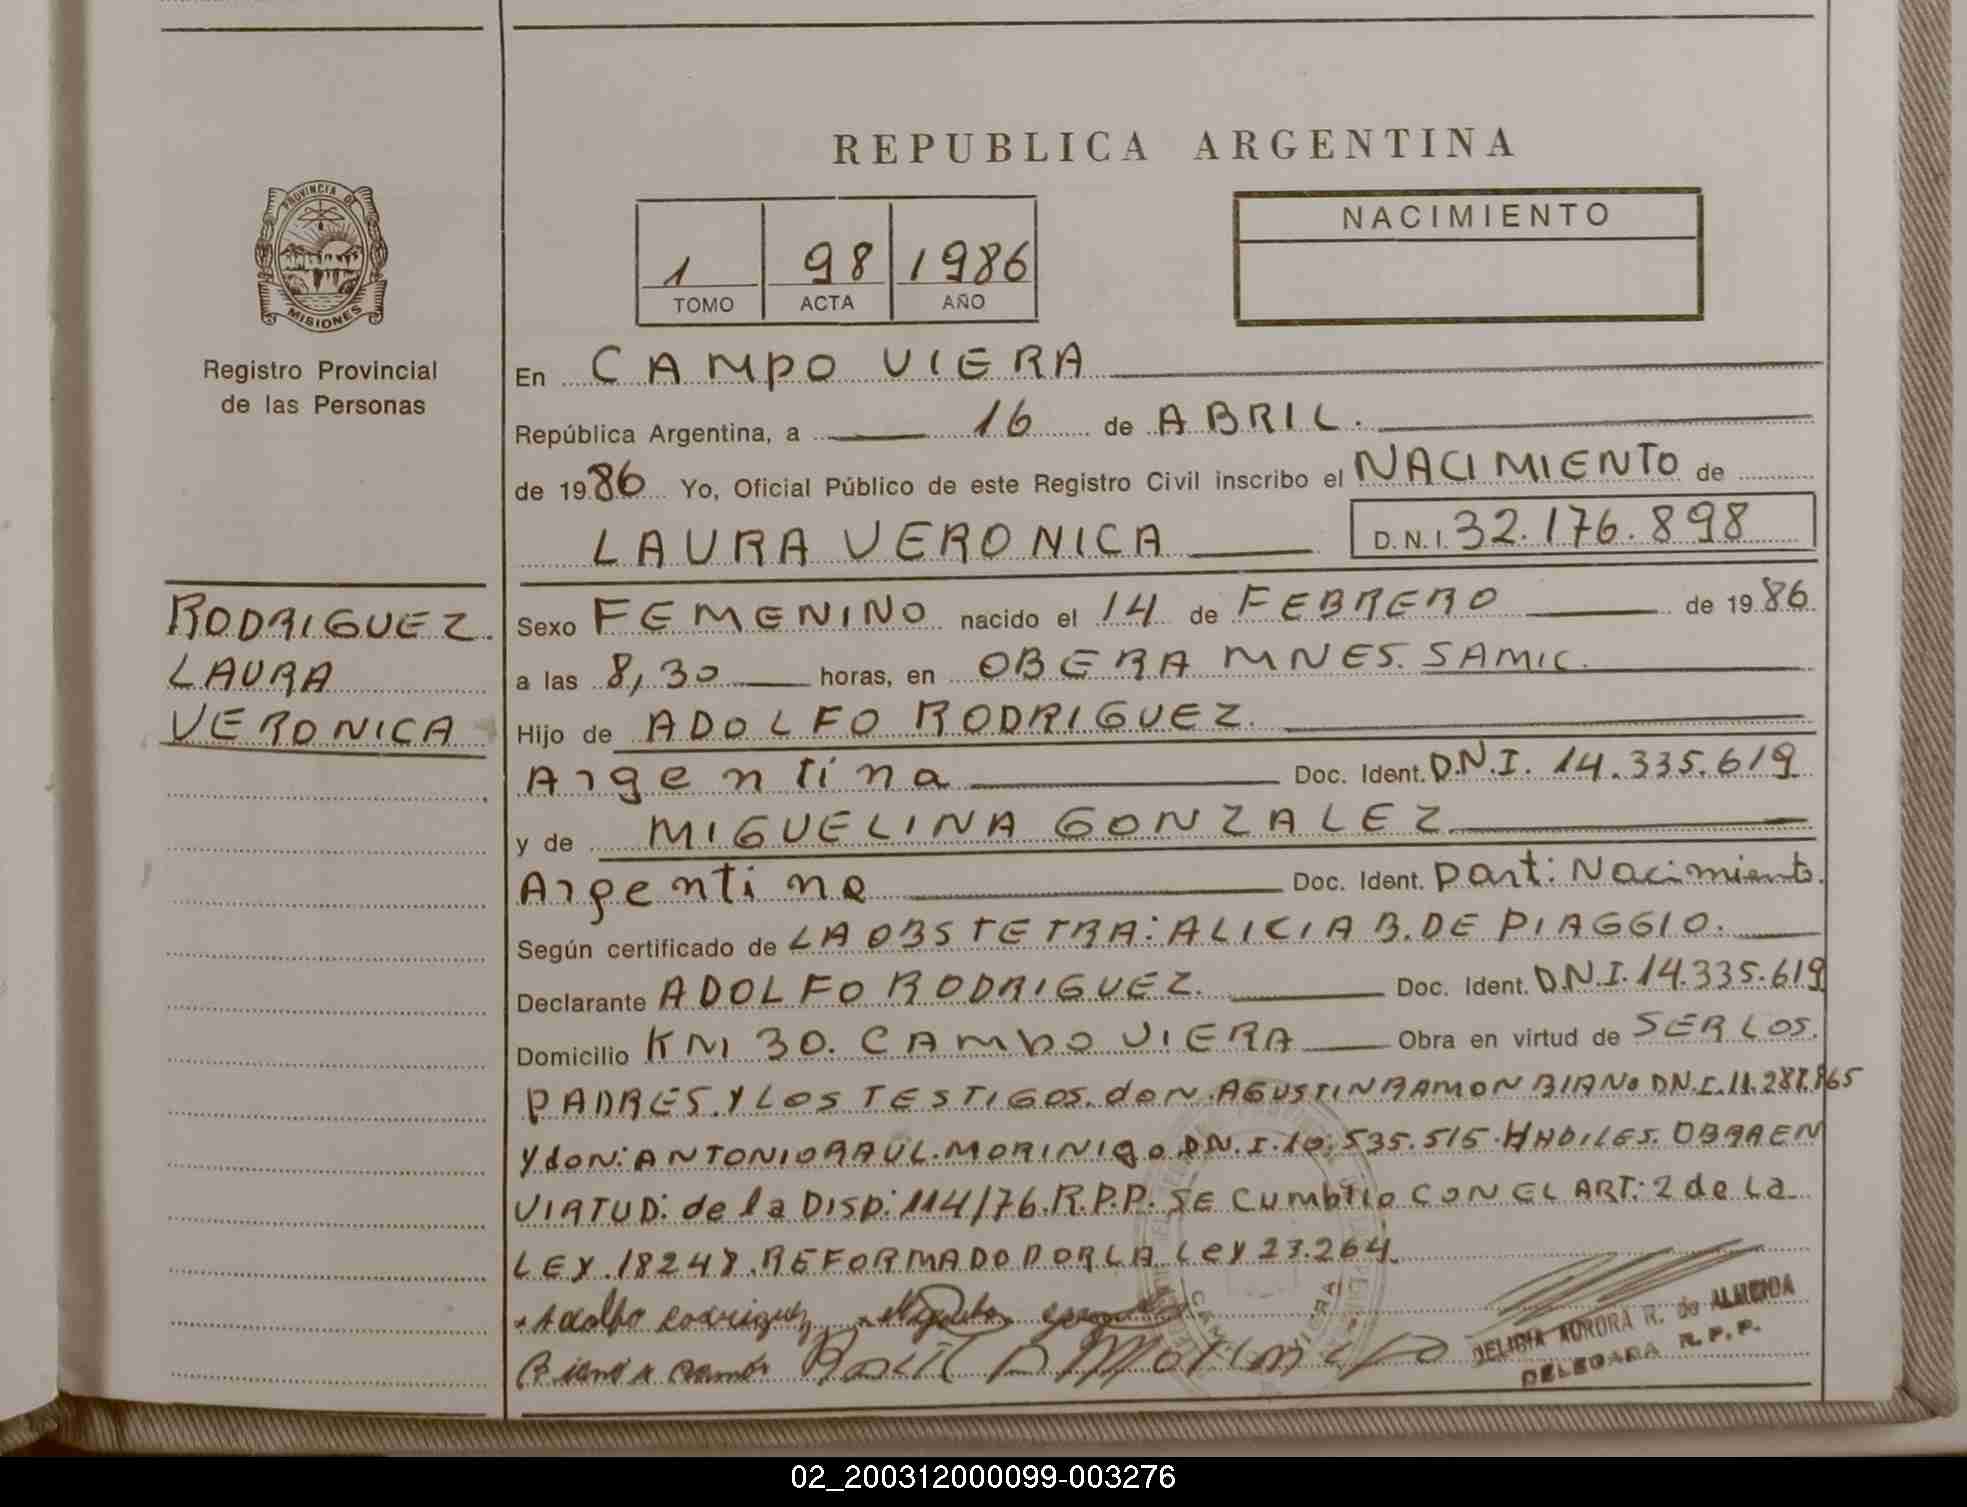 REPUBLICA ARGENTINA
PROVINCIA DE
MISIONES
Registro Provincial
de las Personas
1 98 1986
TOMO ACTA AÑO
NACIMIENTO
En CAMPO VIERA
República Argentina, a 16 de ABRIL.
de 1986 Yo, Oficial Público de este Registro Civil inscribo el NACIMIENTO de
LAURA VERONICA D.N.I. 32.176.898
RODRIGUEZ.
LAURA
VERONICA
Sexo FEMENINO nacido el 14 de FEBRERO de 1986
a las 8,30 horas, en OBERA MNES. SAMIC.
Hijo de ADOLFO RODRIGUEZ.
Argentina Doc. Ident. D.N.I. 14.335.619
y de MIGUELINA GONZALEZ
Argentina Doc. Ident. Part: Nacimiento.
Según certificado de LA OBSTETRA: ALICIA B. DE PIAGGIO.
Declarante ADOLFO RODRIGUEZ. Doc. Ident. D.N.I. 14.335.619
Domicilio KM 30. CAMPO VIERA Obra en virtud de SER LOS.
PADRES. Y LOS TESTIGOS. doN. AGUSTIN RAMON BIANO DN.I.
Y doN: ANTONIO RAUL. MORINIGO. DN.I. 10.535.515. HABILES. OBRA EN
VIRTUD: de la DISP: 114/76. R.P.P. SE CumPlio CON EL ART: 2 de La
LEY. 18248. REFORMADO POR LA LeY 23.264.
Adolfo Rodriguez
DELICIA AURORA R. de ALMEIDA
DELEGADA R.P.P.
02_200312000099-003276